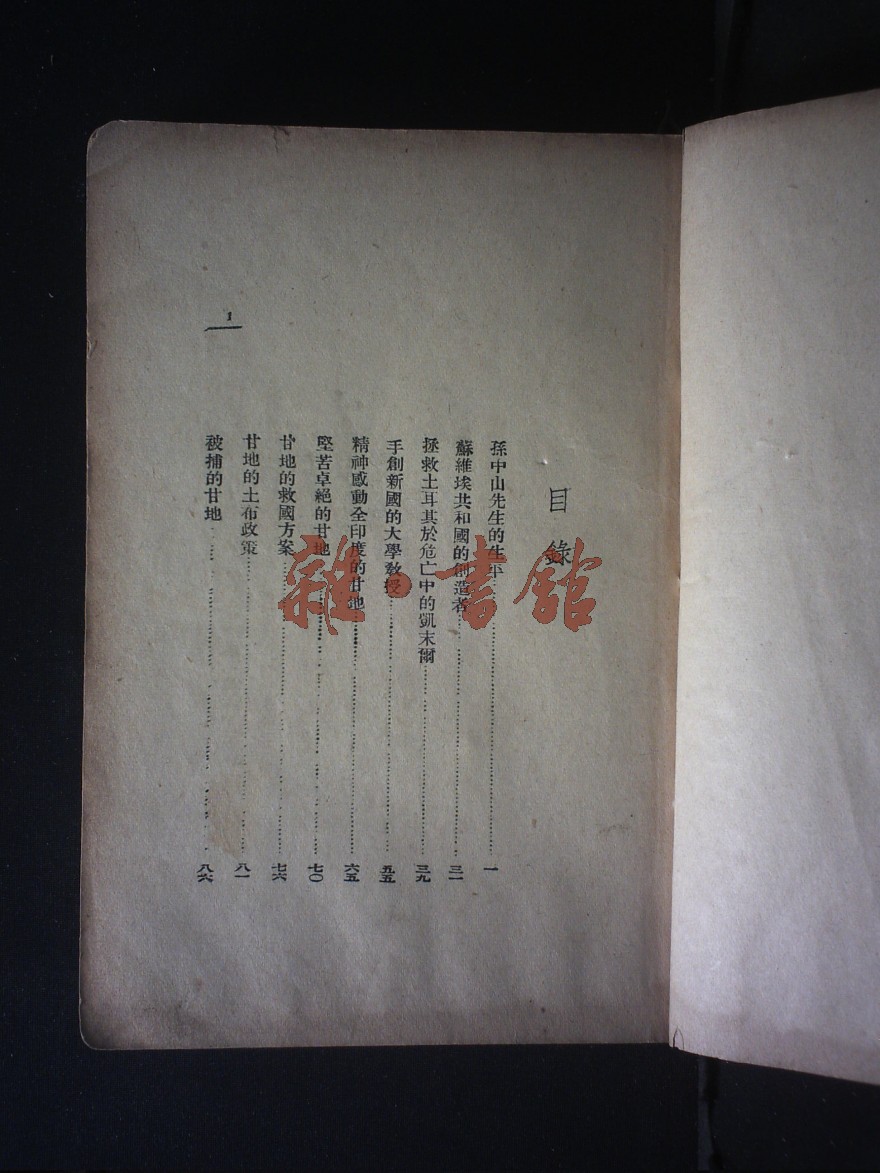 目錄
孫中山先生的生平 一
蘇維埃共和國的創造者 三一
拯救土耳其於危亡中的凱末爾 三九
手創新國的大學教授 五五
精神感動全印度的甘地 六五
堅苦卓絕的甘地 七〇
甘地的救國方案 七六
甘地的土布政策 八一
被捕的甘地 八六
1
雜·書館